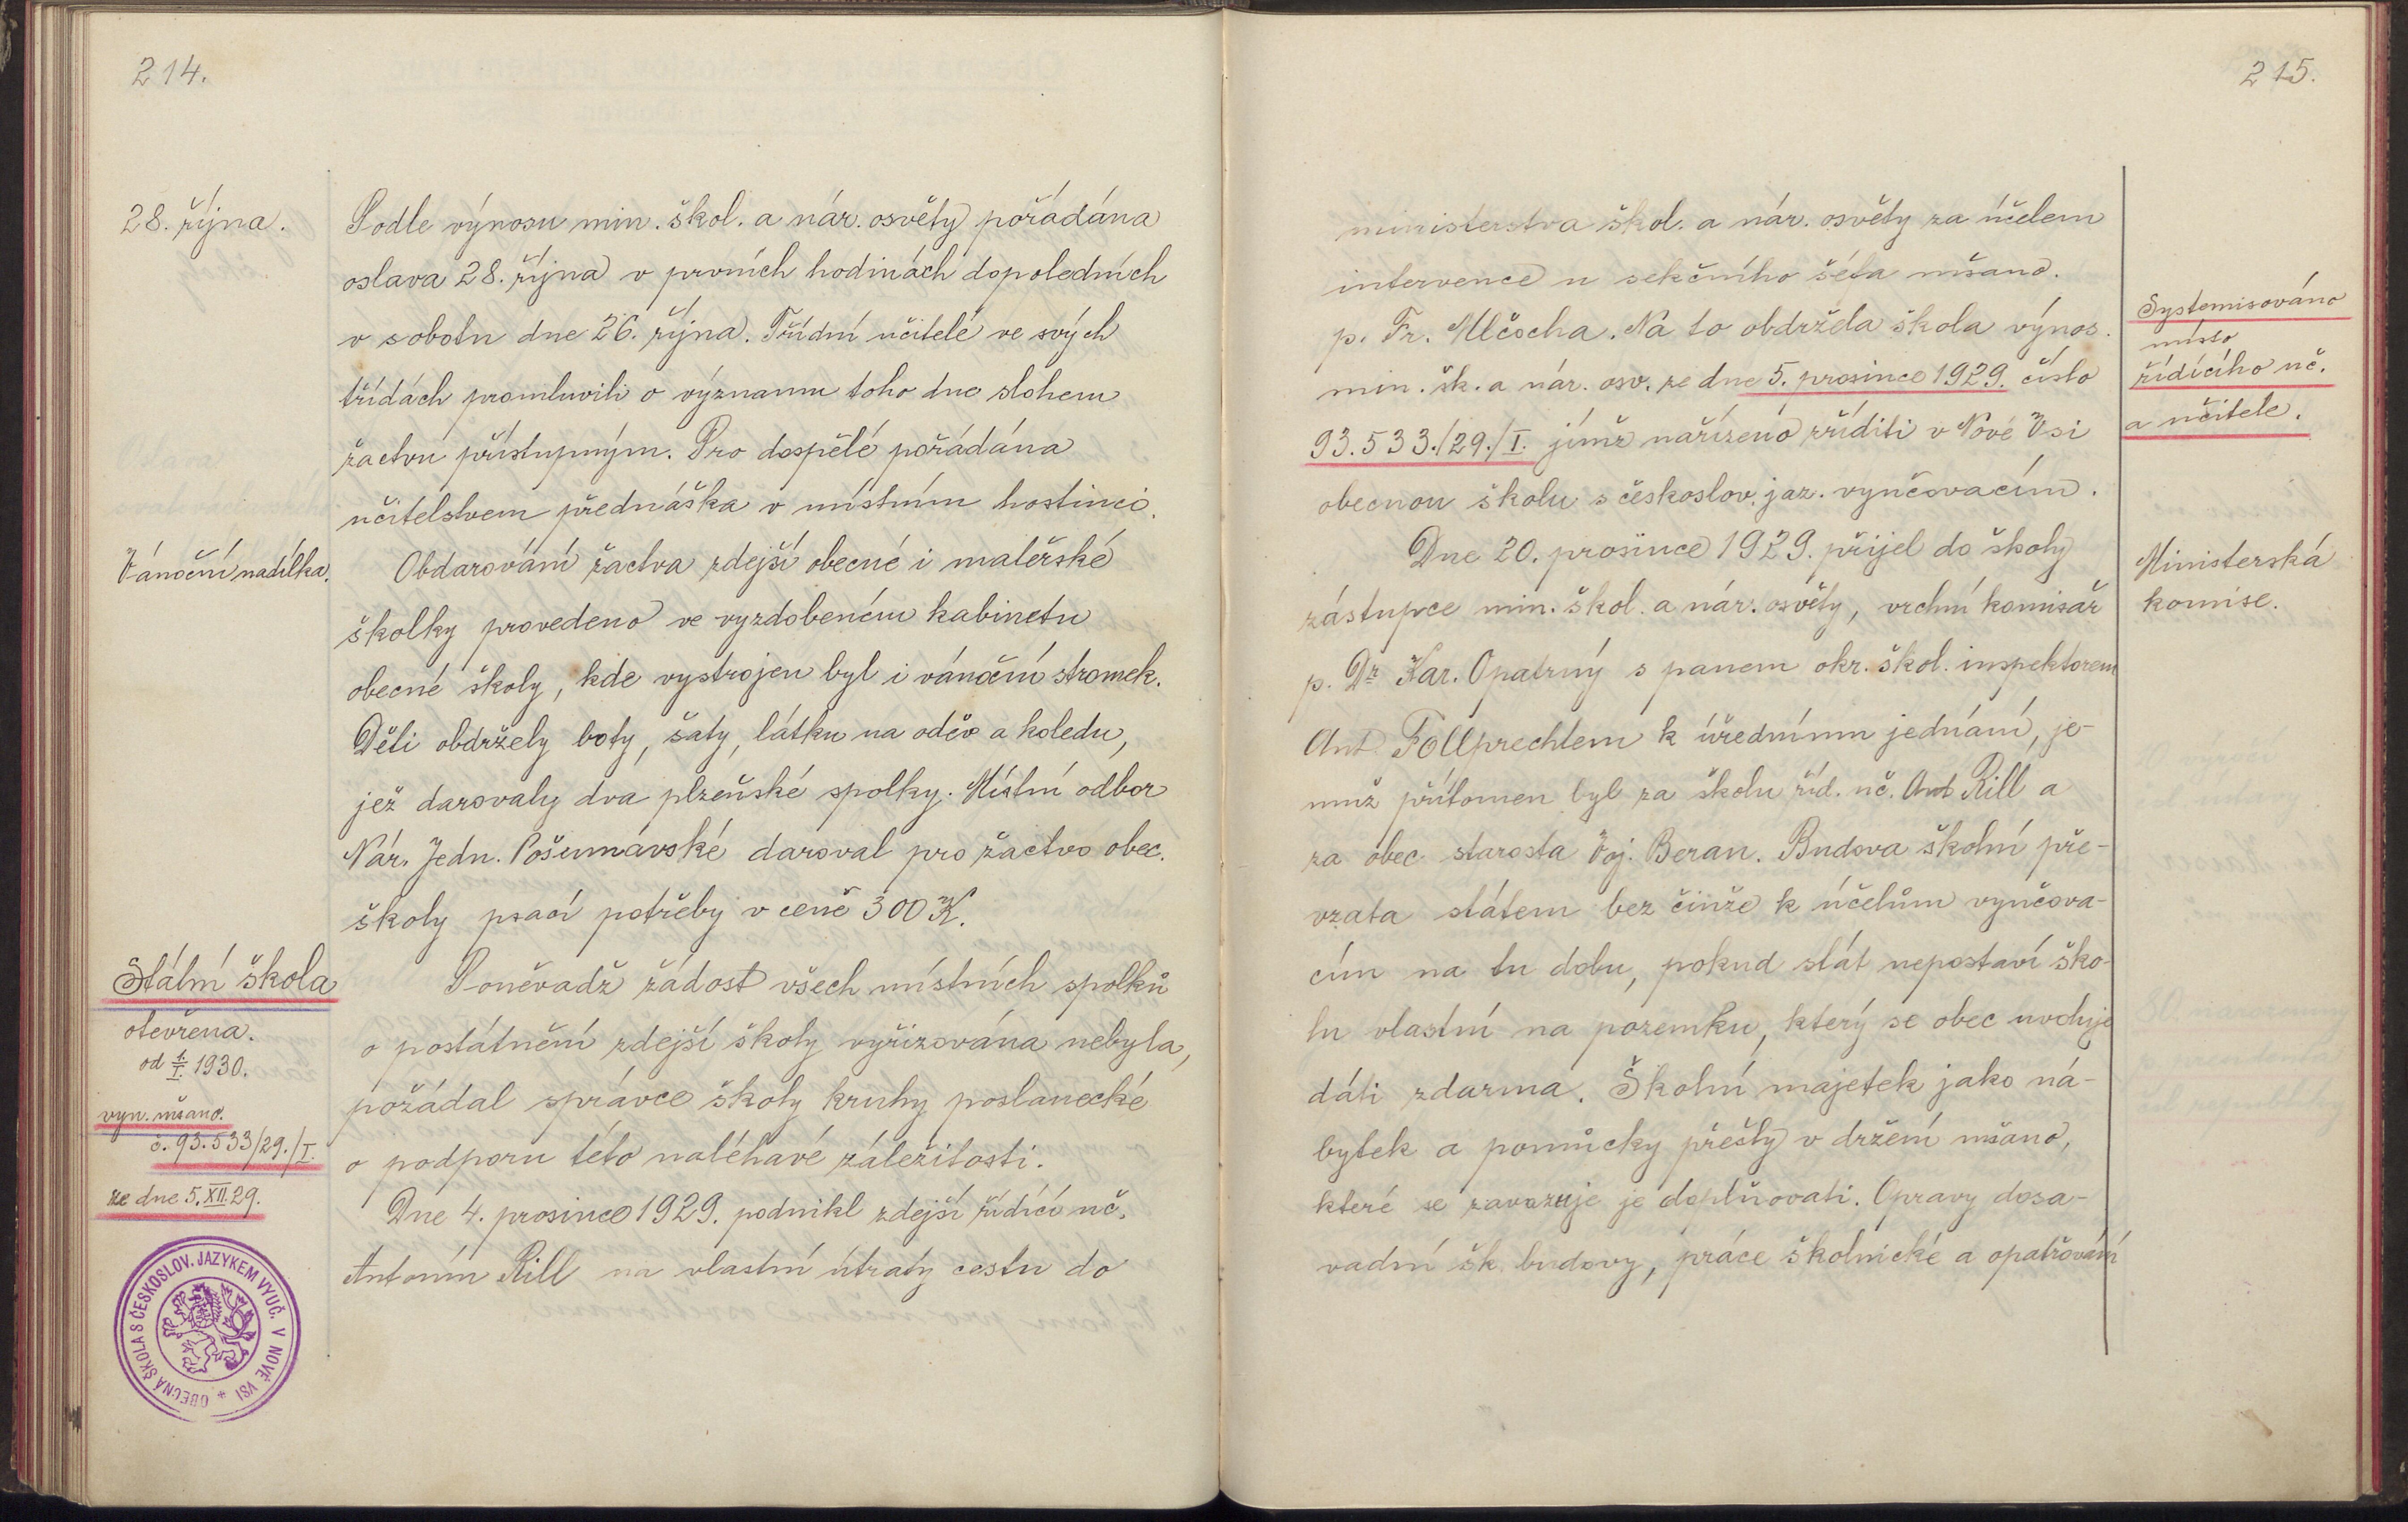 214.
28. října.
Podle výnosu min. škol. a nár. osvěty pořádána
oslava 28. října v prvních hodinách dopoledních
v sobotu dne 26. října. Třídní učitelé ve svých
třídách promluvili o významu toho dne slohem
žactvu přístupným. Pro dospělé pořádána
učitelstvem přednáška v místním hostinci.
Vánoční nadílka.
Obdarování žactva zdejší obecné i mateřské
školky provedeno ve vyzdobeném kabinetu
obecné školy, kde vystrojen byl i vánoční stromek.
Děti obdržely boty, šaty, látku na oděv a koledu,
jež darovaly dva plzeňské spolky. Místní odbor
Nár. Jedn. Pošumavské daroval pro žactvo obec.
školy psací potřeby v ceně 300 K.
Státní škola
otevřena.
od 1./I. 1930.
vyn. mšano.
č. 93.533/29./I.
ze dne 5.XII.29.
Poněvadž žádost všech místních spolků
o postátnění zdejší školy vyřizována nebyla,
požádal správce školy kruhy poslanecké
o podporu této naléhavé záležitosti.
Dne 4. prosince 1929. podnikl zdejší řídící uč.
Antonín Rill na vlastní útraty cestu do
OBECNÁ ŠKOLA S ČESKOSLOV. JAZYKEM VYUČ. V NOVÉ VSI *
215.
ministerstva škol. a nár. osvěty za účelem
intervence u sekčního šéfa mšano.
p. Fr. Mlčocha. Na to obdržela škola výnos
min. šk. a nár. osv. ze dne 5. prosince 1929. číslo
93.533./29./I. jímž nařízeno zříditi v Nové Vsi
obecnou školu s českoslov. jaz. vyučovacím.
Systemisováno
místo
řídícího uč.
a učitele.
Dne 20. prosince 1929. přijel do školy
zástupce min. škol. a nár. osvěty, vrchní komisař
p. Dr Kar. Opatrný s panem okr. škol. inspektorem
Ant. Follprechtem k úřednímu jednání, je-
muž přítomen byl za školu říd. uč. Ant Rill a
za obec starosta Voj. Beran. Budova školní pře-
vzata státem bez činže k účelům vyučova-
cím na tu dobu, pokud stát nepostaví ško-
lu vlastní na pozemku, který se obec uvoluje
dáti zdarma. Školní majetek jako ná-
bytek a pomůcky přešly v držení mšano,
které se zavazuje je doplňovati. Opravy dosa-
vadní šk. budovy, práce školnické a opatřování
Ministerská
komise.